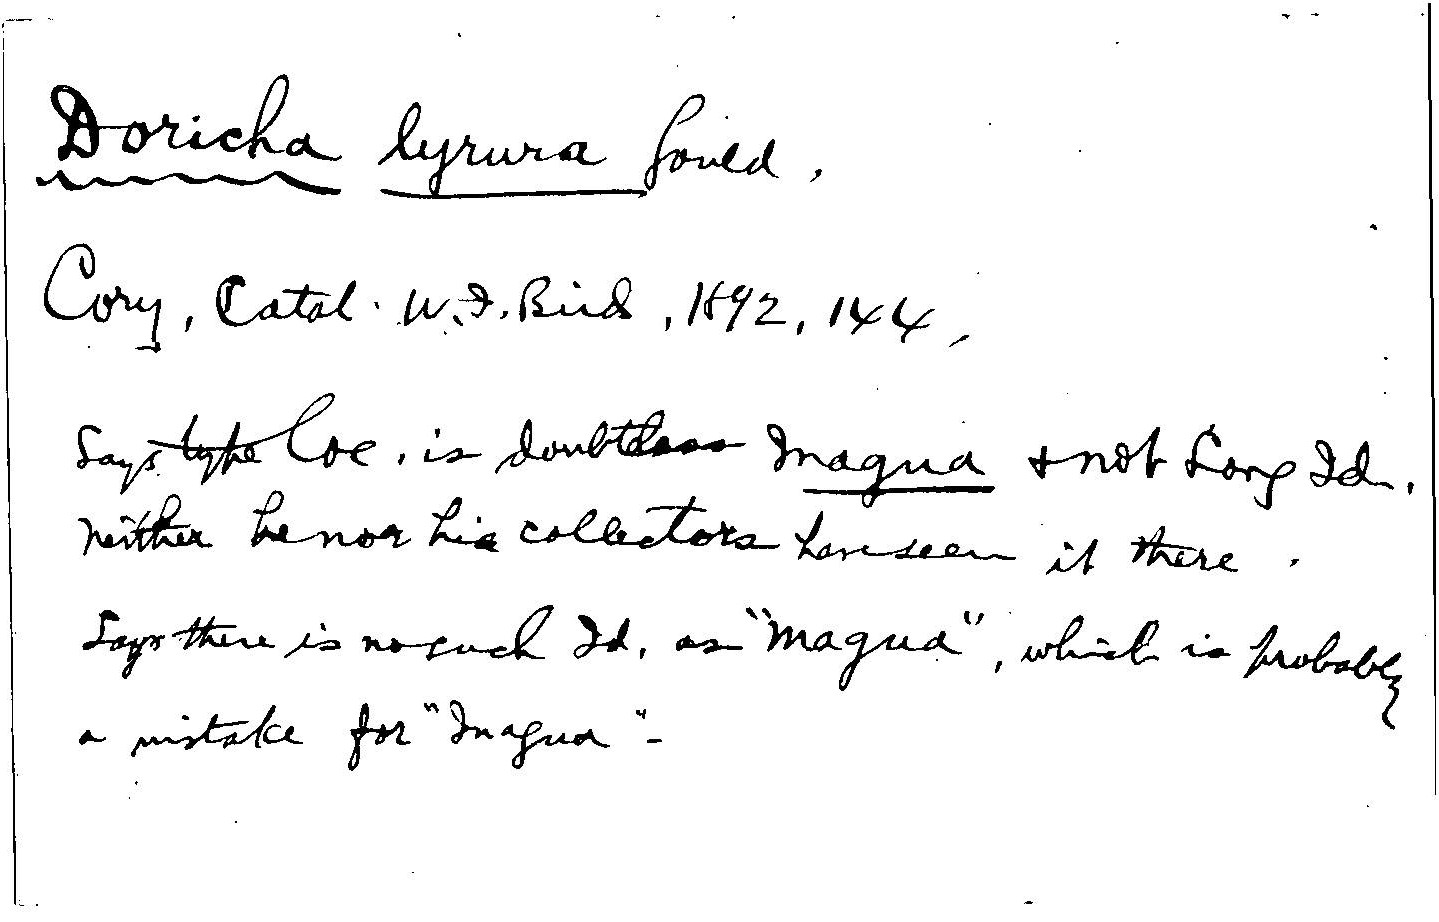 Doricha lyrura Gould.
Cory, Catal. W.I. Birds, 1892, 144,
Says type loc. is doubtless Inagua & not Long Id.
Neither he nor his collectors have seen it there.
Says there is no such Id. as "Magua", which is probably
a mistake for "Inagua".